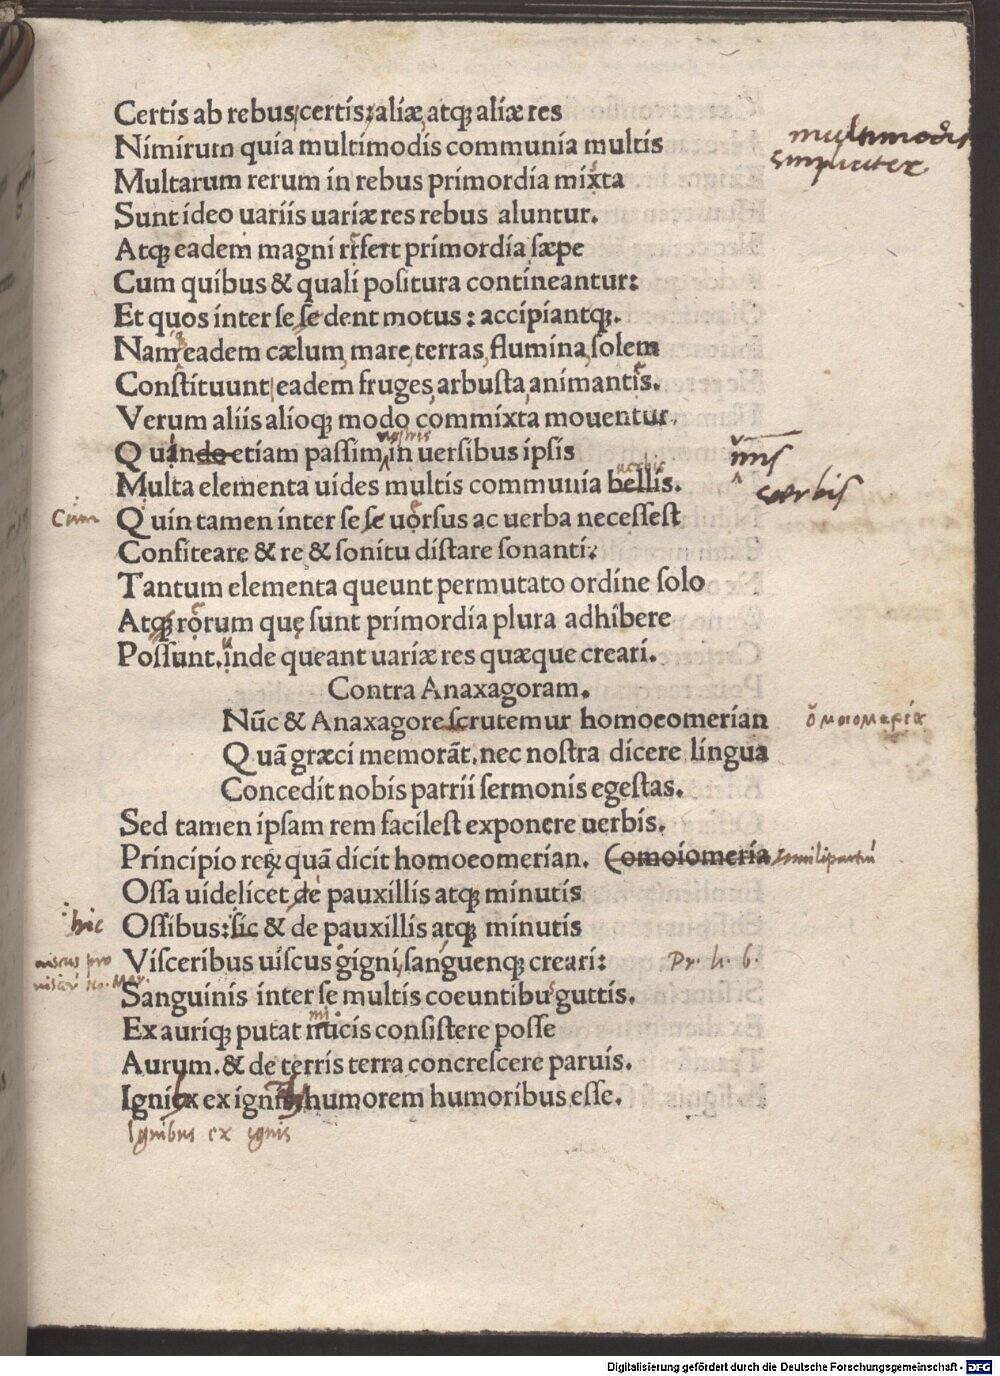 Certis ab rebus certis: aliæ atqꝫ aliæ res
Nimirum quia multimodis communia multis
multimodis
simpliciter
Multarum rerum in rebus primordia mixta
Sunt ideo uariis uariæ res rebus aluntur.
Atqꝫ eadem magni rifert primordia sæpe
Cum quibus & quali positura contineantur:
Et quos inter se se dent motus: accipiantqꝫ.
Nam eadem cælum, mare, terras, flumina, solem
Constituunt eadem fruges, arbusta, animantis.
Verum aliis alioqꝫ modo commixta mouentur.
nostris
Quin do etiam passim in uersibus ipsis
uerbis
Multa elementa uides multis communia bellis.
uerbis
Cum
Quin tamen inter se se uorsus ac uerba necessest
Confiteare & re & sonitu distare sonanti.
Tantum elementa queunt permutato ordine solo
Atqꝫ rorum quę sunt primordia plura adhibere
Possunt. inde queant uariæ res quæque creari.
Contra Anaxagoram.
Nūc & Anaxagore scrutemur homoeomerian
ὁμοιομερία
Quā græci memorāt. nec nostra dicere lingua
Concedit nobis patrii sermonis egestas.
Sed tamen ipsam rem facilest exponere uerbis.
Principio reꝝ quā dicit homoeomerian. (omoiomeria
Ossa uidelicet de pauxillis atqꝫ minutis
hic
Ossibus: sic & de pauxillis atqꝫ minutis
uiscus pro
Visceribus uiscus gigni, sanguenqꝫ creari:
Pr. h. 6.
Sanguinis inter se multis coeuntibu guttis.
mi
Ex auriqꝫ putat micis consistere posse
Aurum. & de terris terra concrescere paruis.
Ignibx ex ignis, humorem humoribus esse.
Ignibus ex ignis
Digitalisierung gefördert durch die Deutsche Forschungsgemeinschaft - DFG